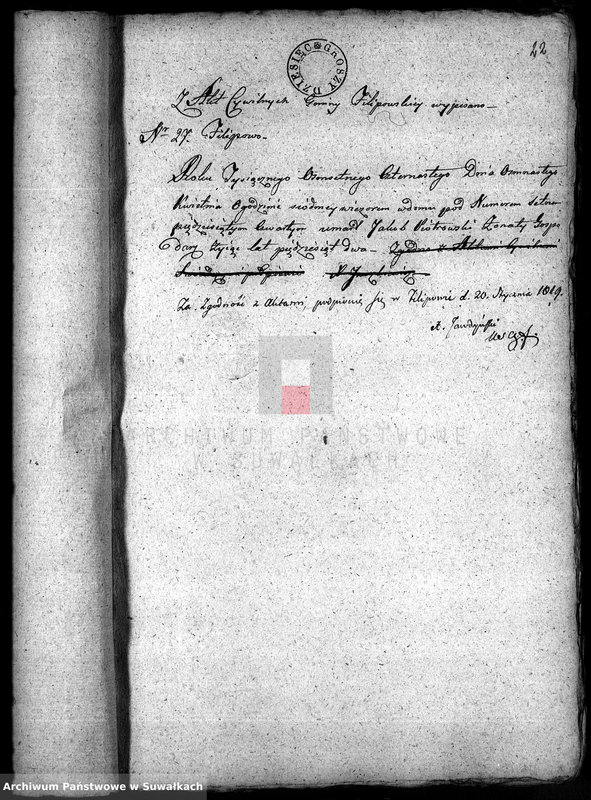 22
DZIESIĘĆ GROSZY
Z Akt Cywilnych Gminy Filipowskiey wypisano
Nr 27. Filipowo.
Roku Tysiącznego Osmsetnego Czternastego Dnia Osmnastego
Kwietnia o godzinie siódmey wieczorem w domu pod Numerem Setnem
pięćdziesiątym Czwartym umarł Jakub Piotrowski Żonaty Gospo
darz żyjąc lat pięćdziesiąt dwa
Za Zgodność z Aktami, podpisuię się w Filipowie d. 20. Stycznia 1819.
ARCHIWUM PAŃSTWOWE
W SUWAŁKACH
Archiwum Państwowe w Suwałkach